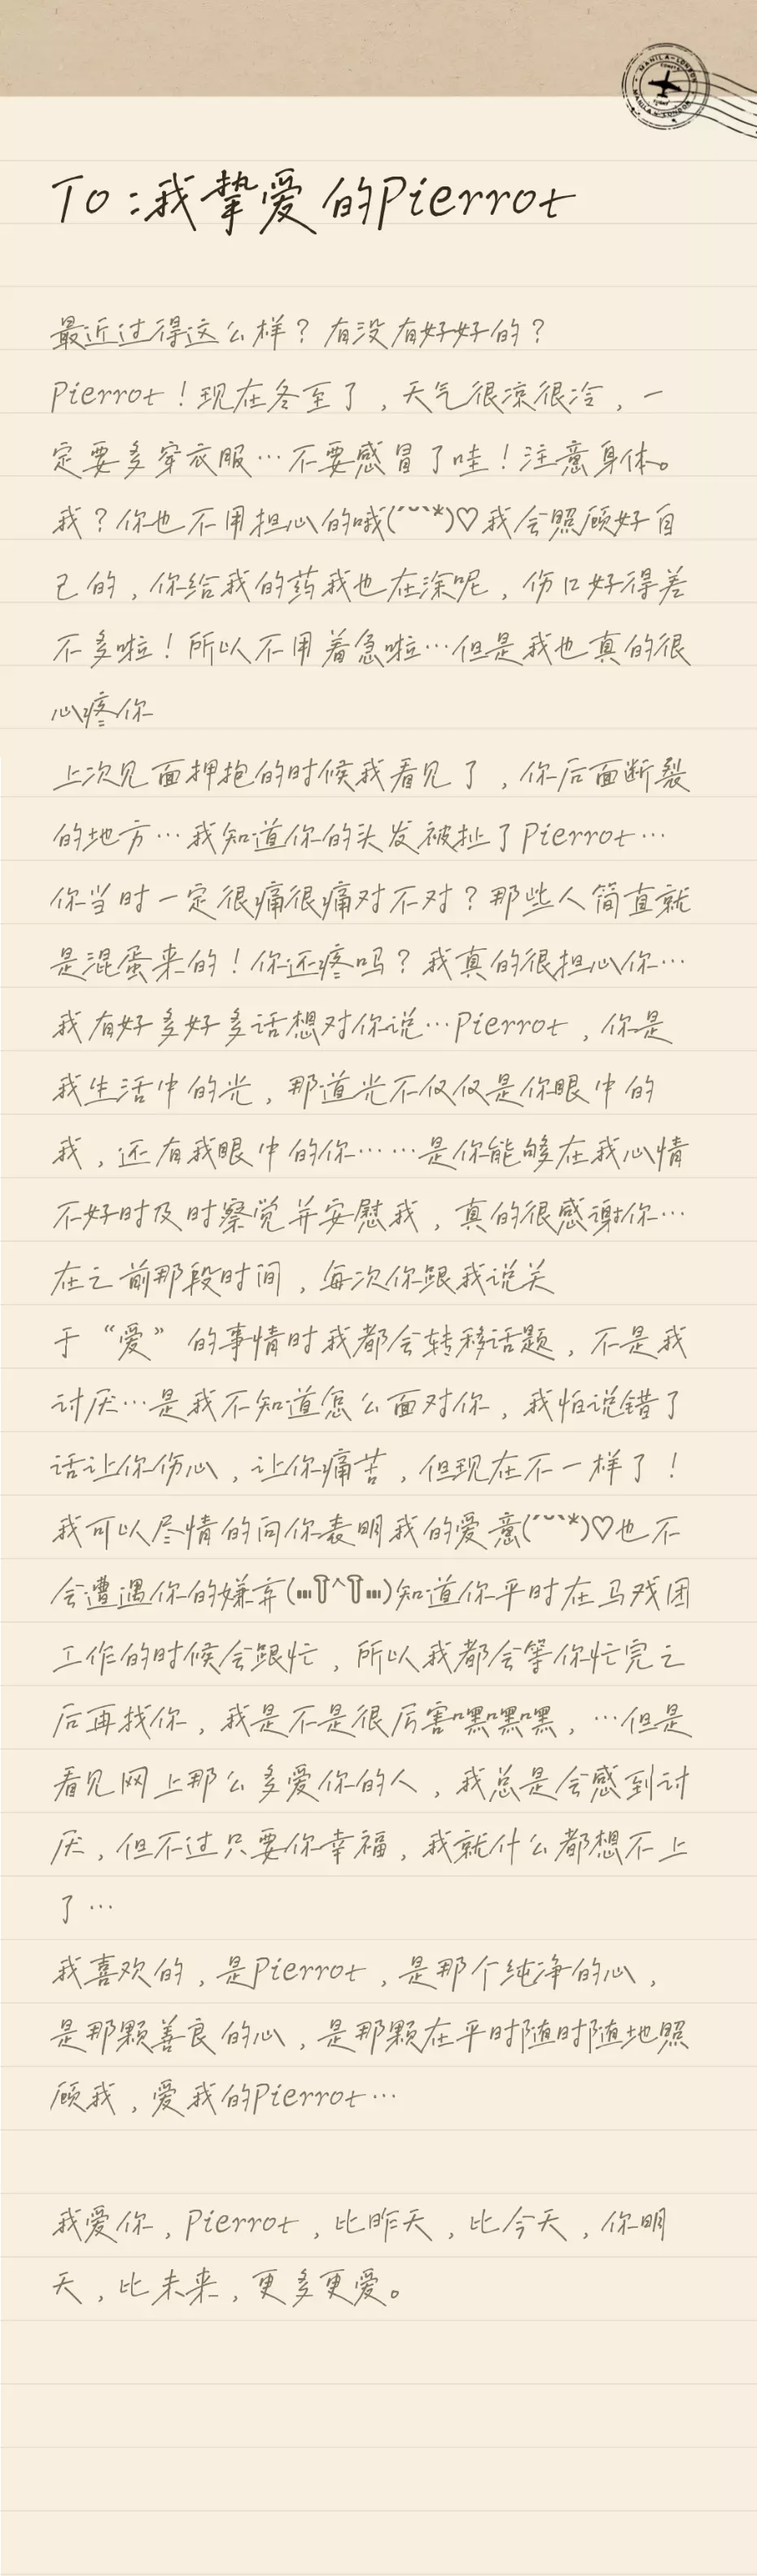 MANILA-LONDON
MANILA-LONDON
To:我挚爱的Pierrot
最近过得这么样?有没有好好的?
Pierrot!现在冬至了,天气很凉很冷,一
定要多穿衣服…不要感冒了哇!注意身体。
我?你也不用担心的哦(ˊᵕˋ*)♡我会照顾好自
己的,你给我的药我也在涂呢,伤口好得差
不多啦!所以不用着急啦…但是我也真的很
心疼你
上次见面押抱的时候我看见了,你后面断裂
的地方…我知道你的头发被扯了Pierrot…
你当时一定很痛很痛对不对?那些人简直就
是混蛋来的!你还疼吗?我真的很担心你…
我有好多好多话想对你说…Pierrot,你是
我生活中的光,那道光不仅仅是你眼中的
我,还有我眼中的你……是你能够在我心情
不好时及时察觉并安慰我,真的很感谢你…
在之前那段时间,每次你跟我说关
于“爱”的事情时我都会转移话题,不是我
讨厌…是我不知道怎么面对你,我怕说错了
话让你伤心,让你痛苦,但现在不一样了!
我可以尽情的向你表明我的爱意(ˊᵕˋ*)♡也不
会遭遇你的嫌弃(⑉꒦ິ^꒦ິ⑉)知道你平时在马戏团
工作的时候会跟忙,所以我都会等你忙完之
后再找你,我是不是很厉害嘿嘿嘿,…但是
看见网上那么多爱你的人,我总是会感到讨
厌,但不过只要你幸福,我就什么都想不上
了…
我喜欢的,是Pierrot,是那个纯净的心,
是那颗善良的心,是那颗在平时随时随地照
顾我,爱我的Pierrot…
我爱你,Pierrot,比昨天,比今天,你明
天,比未来,更多更爱。